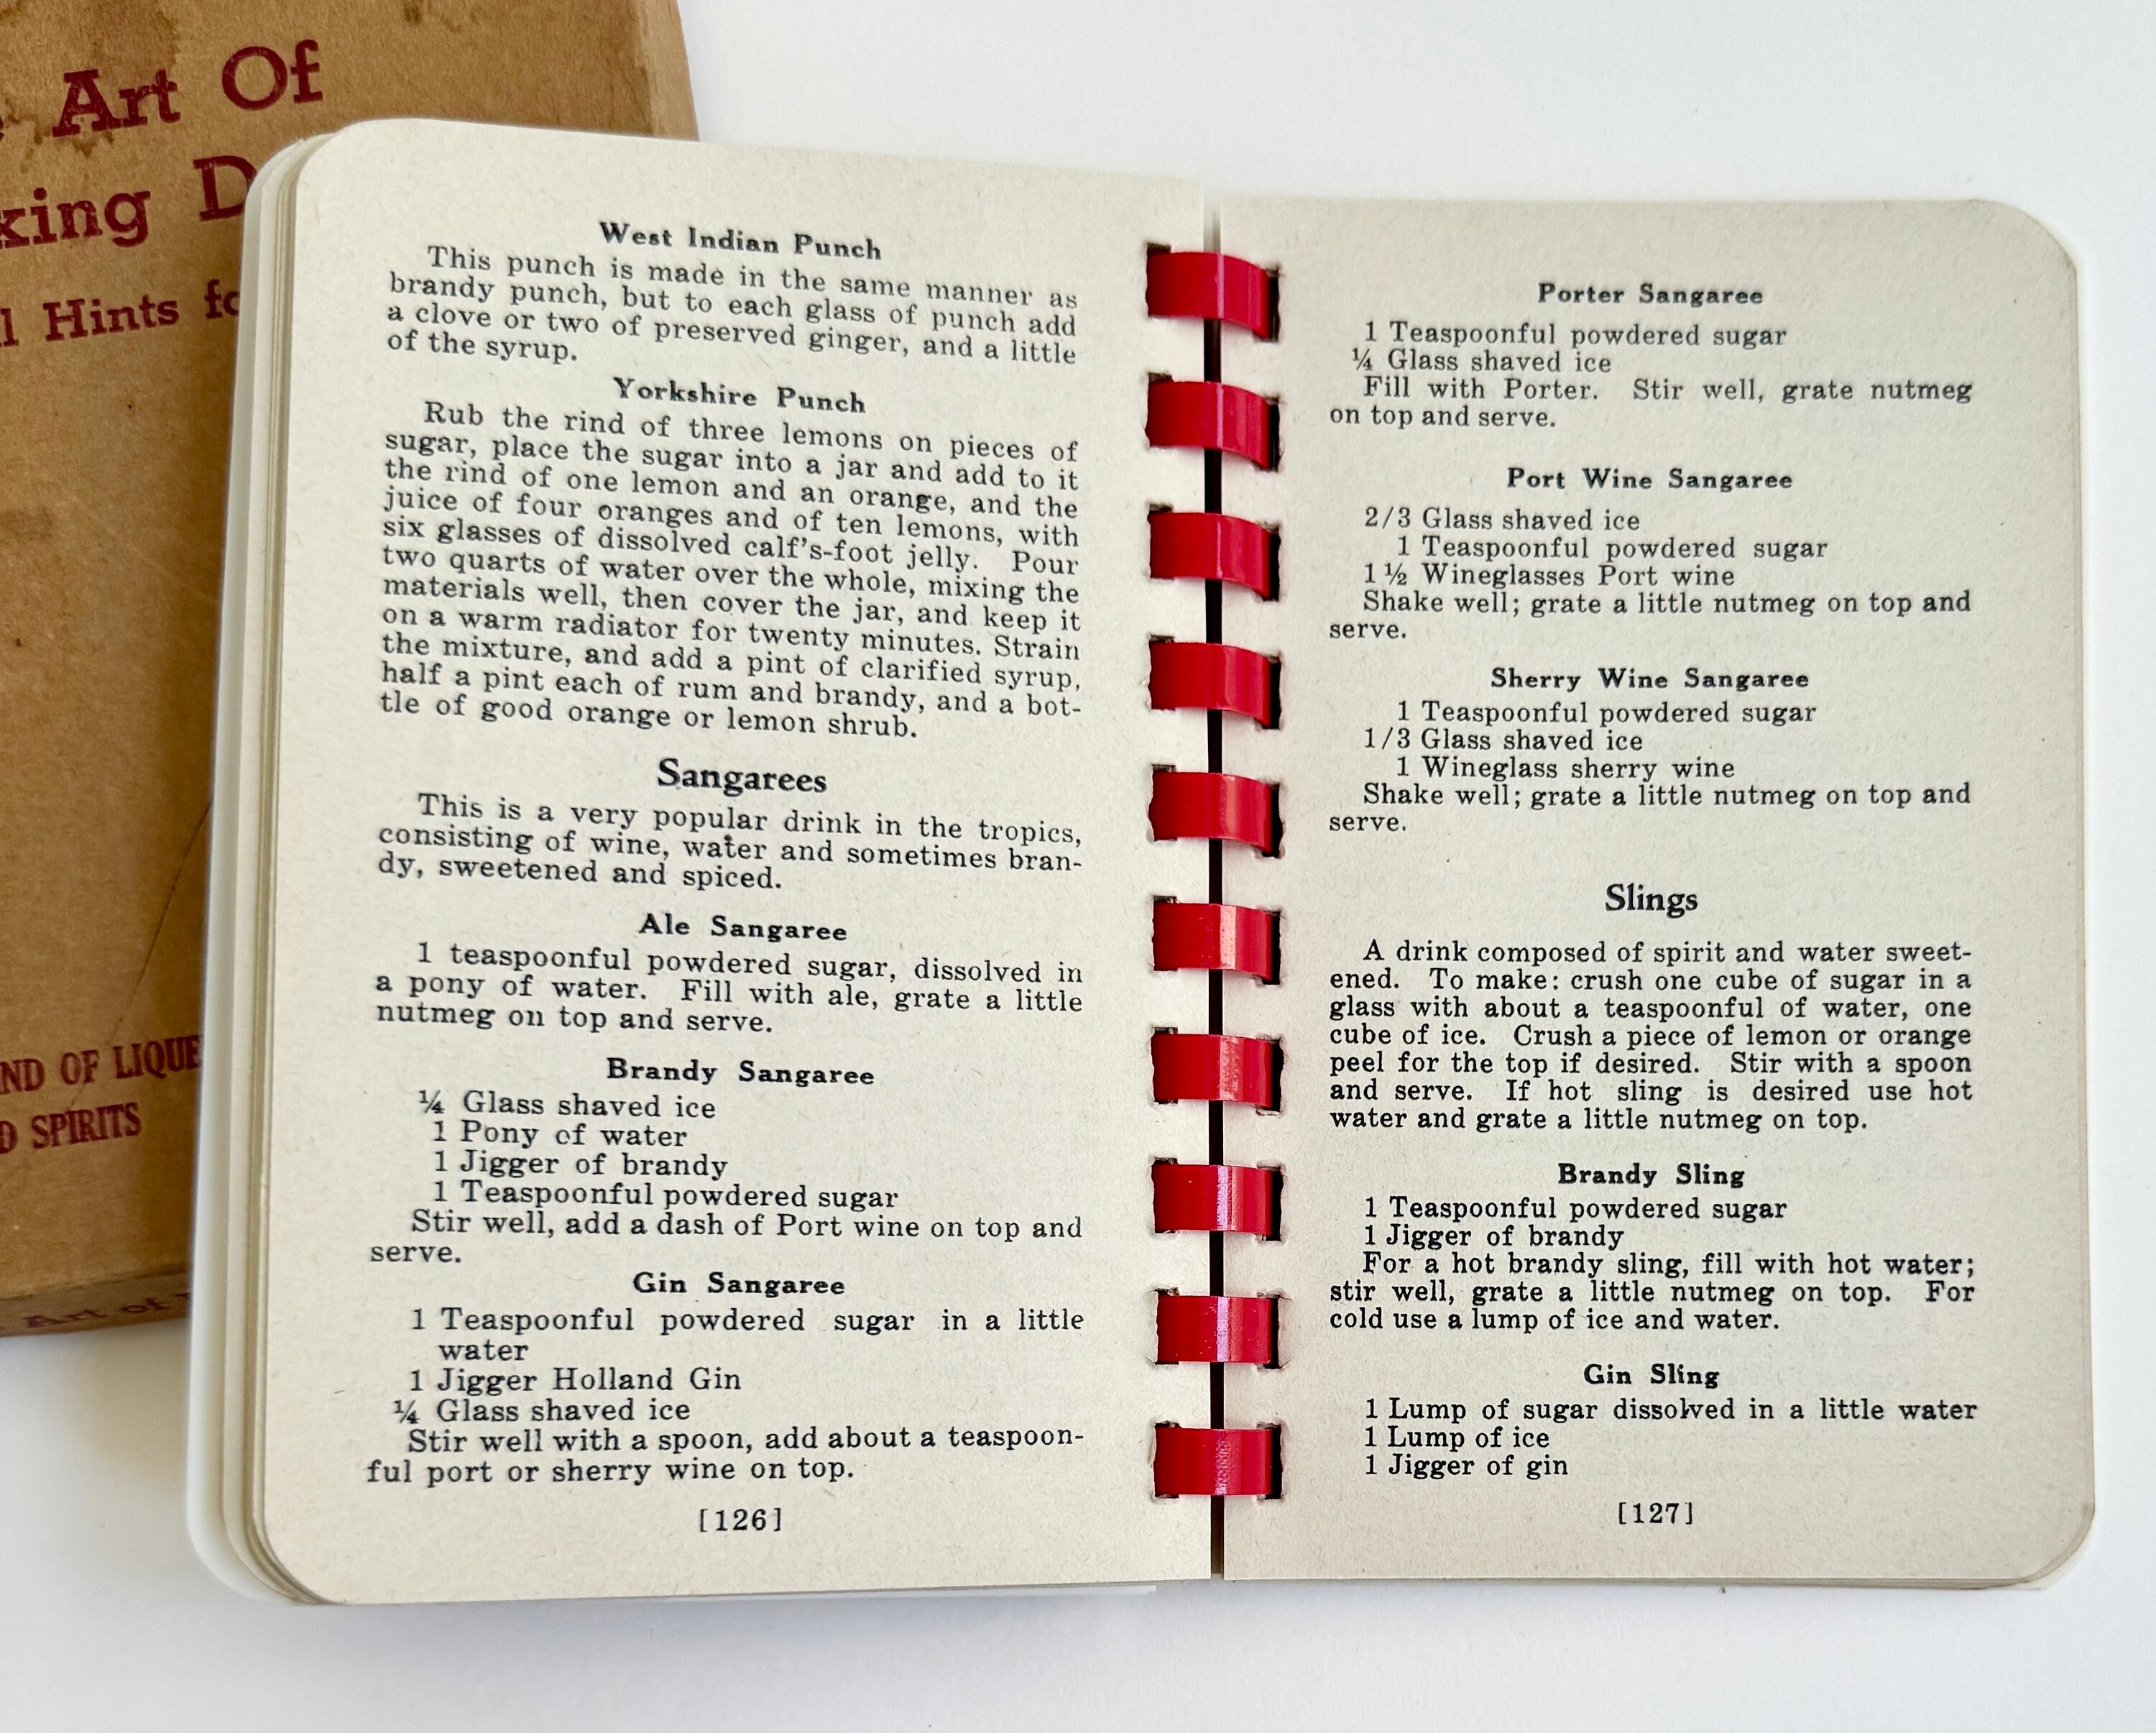 Art Of
king D
l Hints fo
ND OF LIQUE
D SPIRITS
Art of
West Indian Punch
This punch is made in the same manner as
brandy punch, but to each glass of punch add
a clove or two of preserved ginger, and a little
of the syrup.
Yorkshire Punch
Rub the rind of three lemons on pieces of
sugar, place the sugar into a jar and add to it
the rind of one lemon and an orange, and the
juice of four oranges and of ten lemons, with
six glasses of dissolved calf's-foot jelly. Pour
two quarts of water over the whole, mixing the
materials well, then cover the jar, and keep it
on a warm radiator for twenty minutes. Strain
the mixture, and add a pint of clarified syrup,
half a pint each of rum and brandy, and a bot-
tle of good orange or lemon shrub.
Sangarees
This is a very popular drink in the tropics,
consisting of wine, water and sometimes bran-
dy, sweetened and spiced.
Ale Sangaree
1 teaspoonful powdered sugar, dissolved in
a pony of water. Fill with ale, grate a little
nutmeg on top and serve.
Brandy Sangaree
¼ Glass shaved ice
1 Pony of water
1 Jigger of brandy
1 Teaspoonful powdered sugar
Stir well, add a dash of Port wine on top and
serve.
Gin Sangaree
1 Teaspoonful powdered sugar in a little
water
1 Jigger Holland Gin
¼ Glass shaved ice
Stir well with a spoon, add about a teaspoon-
ful port or sherry wine on top.
[126]
Porter Sangaree
1 Teaspoonful powdered sugar
¼ Glass shaved ice
Fill with Porter. Stir well, grate nutmeg
on top and serve.
Port Wine Sangaree
2/3 Glass shaved ice
1 Teaspoonful powdered sugar
1½ Wineglasses Port wine
Shake well; grate a little nutmeg on top and
serve.
Sherry Wine Sangaree
1 Teaspoonful powdered sugar
1/3 Glass shaved ice
1 Wineglass sherry wine
Shake well; grate a little nutmeg on top and
serve.
Slings
A drink composed of spirit and water sweet-
ened. To make: crush one cube of sugar in a
glass with about a teaspoonful of water, one
cube of ice. Crush a piece of lemon or orange
peel for the top if desired. Stir with a spoon
and serve. If hot sling is desired use hot
water and grate a little nutmeg on top.
Brandy Sling
1 Teaspoonful powdered sugar
1 Jigger of brandy
For a hot brandy sling, fill with hot water;
stir well, grate a little nutmeg on top. For
cold use a lump of ice and water.
Gin Sling
1 Lump of sugar dissolved in a little water
1 Lump of ice
1 Jigger of gin
[127]